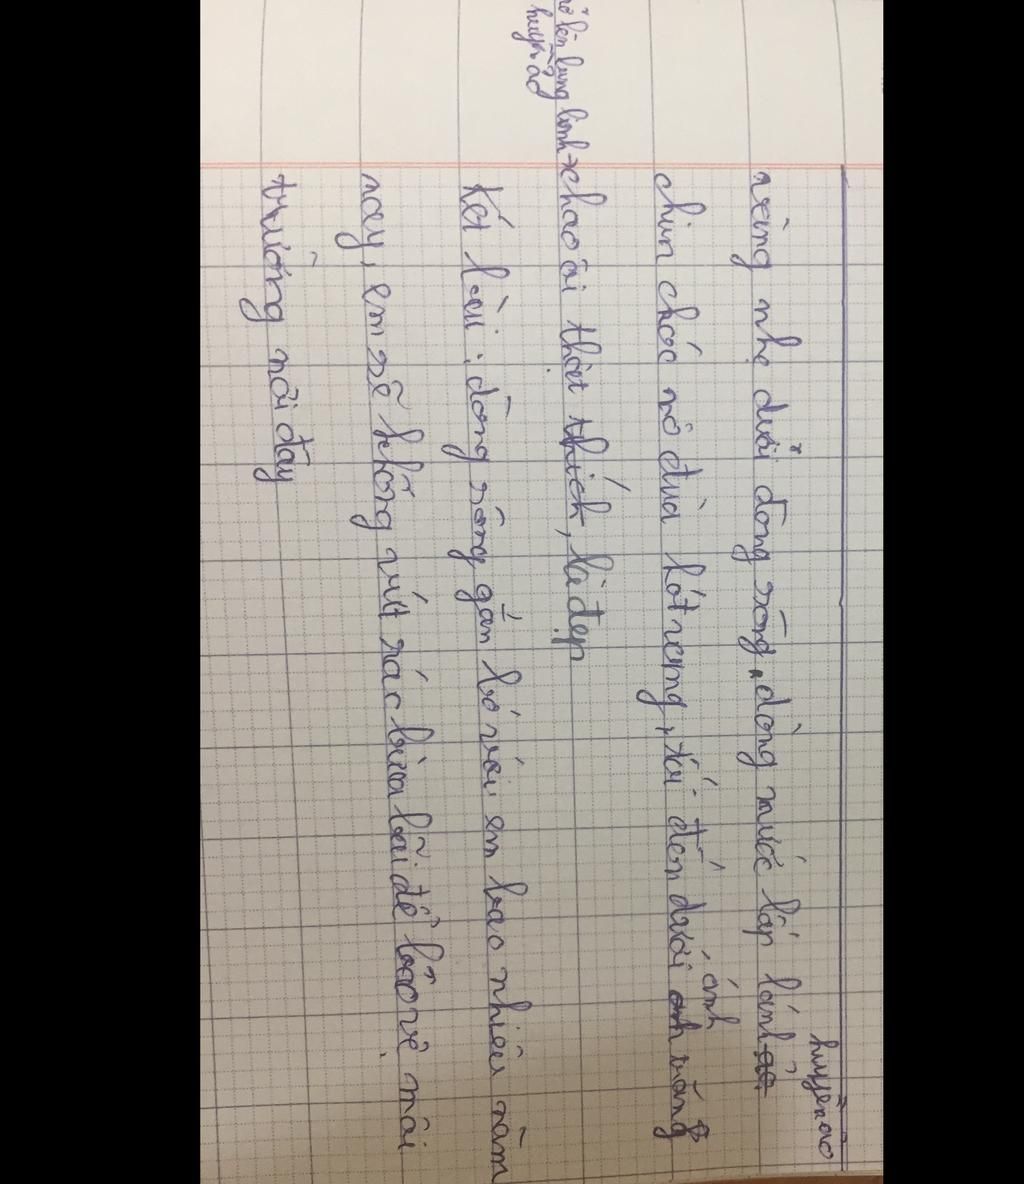 huyền ảo
vàng nhẹ dưới dòng sông, dòng nước lấp lánh
ánh
chim chóc nô đùa hót vang, tối đến dưới ánh trăng
lên lung linh chao ôi thật thích, là đẹp
huyền ảo
Kết bài: dòng sông gắn bó với em bao nhiêu năm
nay, em sẽ không vứt rác bừa bãi để bảo vệ môi
trường nơi đây